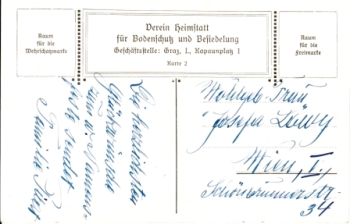 Raum
für die
Wehrschatzmarke
Verein Heimstatt
für Bodenschutz und Besiedelung
Geschäftsstelle: Graz, I., Kapaunplatz 1
Karte 2
Raum
für die
Freimarke
Die herzlichsten
Glückwünsche
zum
Familie
Wohlgeb. Frau
Josefa
Wien, I.
Schönbrunnerstr.
34